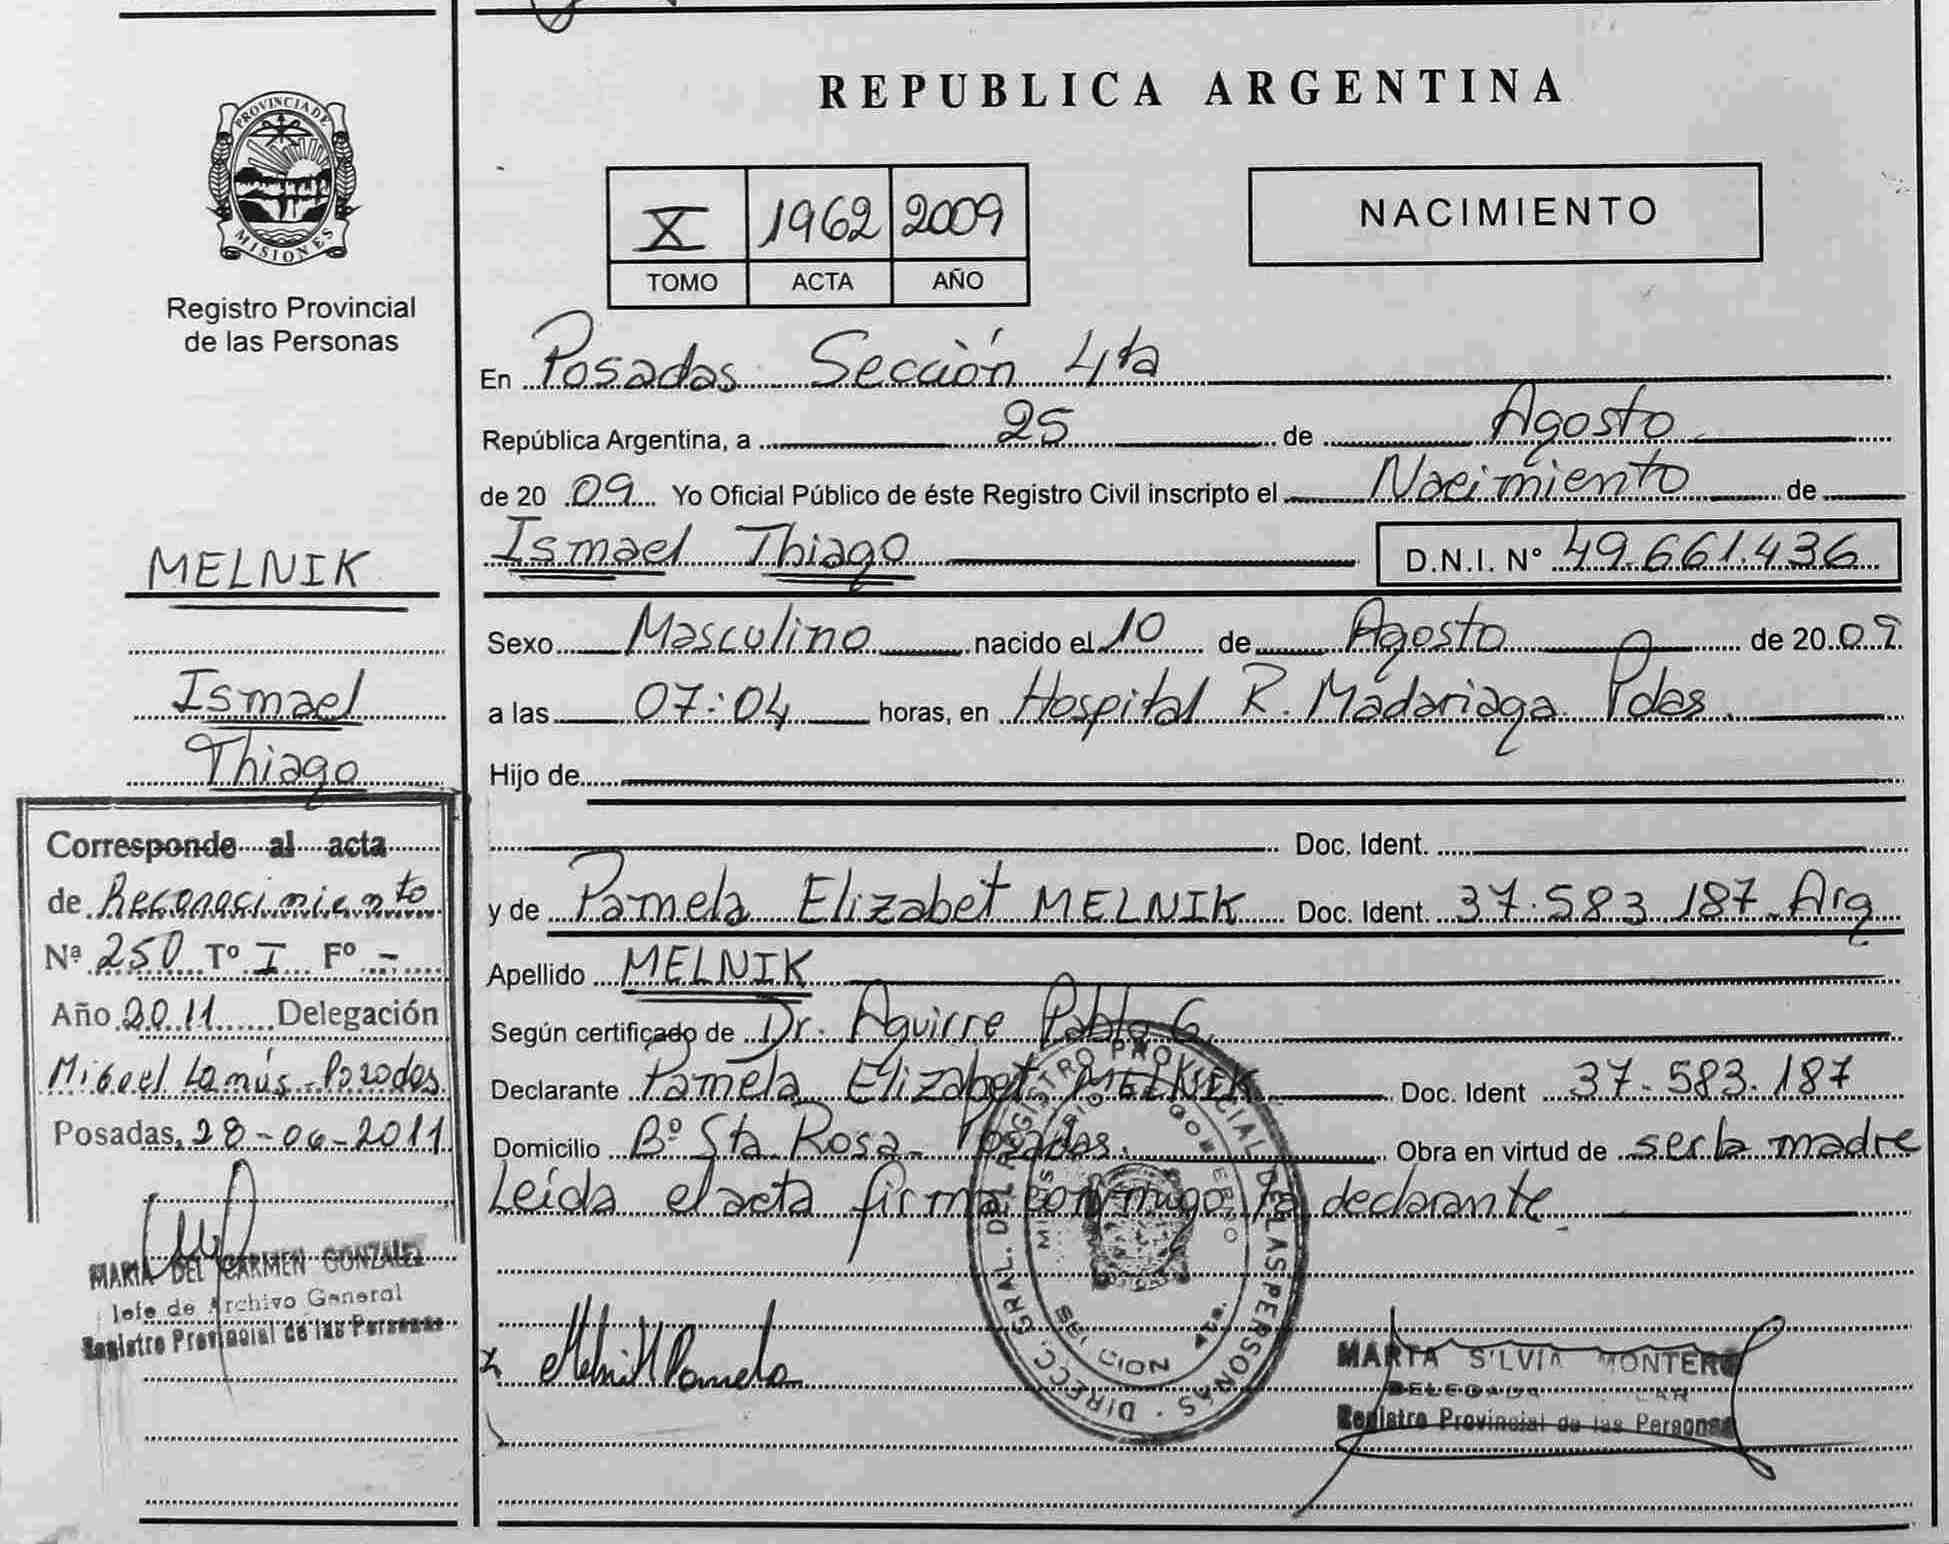 PROVINCIA DE
MISIONES
Registro Provincial
de las Personas
MELNIK
Ismael
Thiago
Corresponde al acta
de Reconocimiento
Nª 250 Tº I Fº -
Año 2011 Delegación
Miguel Lanús - Posadas
Posadas, 28-06-2011
MARIA DEL CARMEN GONZALEZ
Jefe de Archivo General
Registro Provincial de las Personas
REPUBLICA ARGENTINA
X 1962 2009
TOMO ACTA AÑO
NACIMIENTO
En Posadas Sección 4ta
República Argentina, a 25 de Agosto
de 20 09 Yo Oficial Público de éste Registro Civil inscripto el Nacimiento de
Ismael Thiago D.N.I. Nº 49.661.436
Sexo Masculino nacido el 10 de Agosto de 20 09
a las 07:04 horas, en Hospital R. Madariaga Pdas.
Hijo de
Doc. Ident.
y de Pamela Elizabet MELNIK Doc. Ident. 37.583.187 Arg
Apellido MELNIK
Según certificado de Dr. Aguirre Pablo G.
Declarante Pamela Elizabet MELNIK Doc. Ident 37.583.187
Domicilio Bº Sta Rosa - Posadas. Obra en virtud de ser la madre
Leída el acta firma conmigo la declarante
x Melnik Pamela
DIRECC. GRAL. DEL REGISTRO PROVINCIAL DE LAS PERSONAS
MARTA SILVIA MONTERO
DELEGADA
Registro Provincial de las Personas